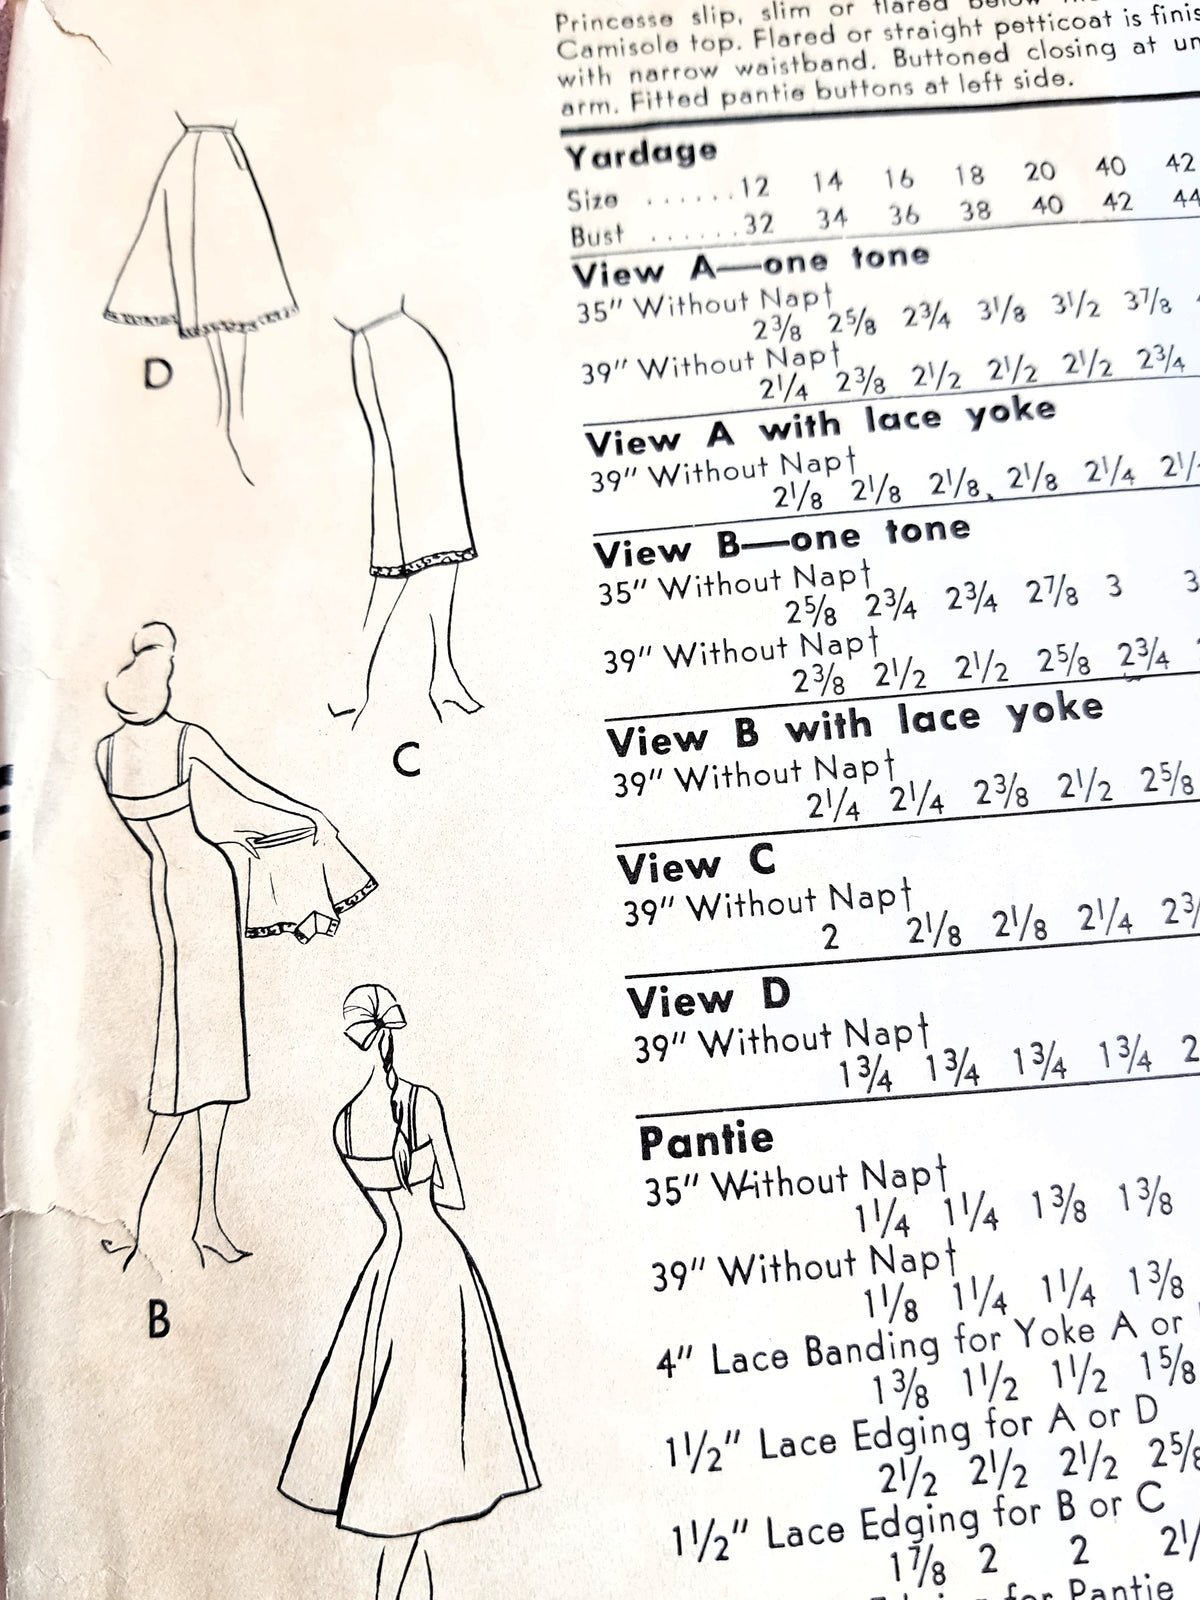 Princesse slip, slim or flared below
Camisole top. Flared or straight petticoat is
with narrow waistband. Buttoned closing at
arm. Fitted pantie buttons at left side.
Yardage
Size ......12 14 16 18 20 40 42
Bust ......32 34 36 38 40 42 44
View A—one tone
35" Without Nap†
2⅜ 2⅝ 2¾ 3⅛ 3½ 3⅞
39" Without Nap†
2¼ 2⅜ 2½ 2½ 2½ 2¾
View A with lace yoke
39" Without Nap†
2⅛ 2⅛ 2⅛ 2⅛ 2¼
View B—one tone
35" Without Nap†
2⅝ 2¾ 2¾ 2⅞ 3
39" Without Nap†
2⅜ 2½ 2½ 2⅝ 2¾
View B with lace yoke
39" Without Nap†
2¼ 2¼ 2⅜ 2½ 2⅝
View C
39" Without Nap†
2 2⅛ 2⅛ 2¼
View D
39" Without Nap†
1¾ 1¾ 1¾ 1¾
Pantie
35" Without Nap†
1¼ 1¼ 1⅜ 1⅜
39" Without Nap†
1⅛ 1¼ 1¼ 1⅜
4" Lace Banding for Yoke A or
1⅜ 1½ 1½ 1⅝
1½" Lace Edging for A or D
2½ 2½ 2½ 2⅝
1½" Lace Edging for B or C
1⅞ 2 2
Edging for Pantie
D
C
B